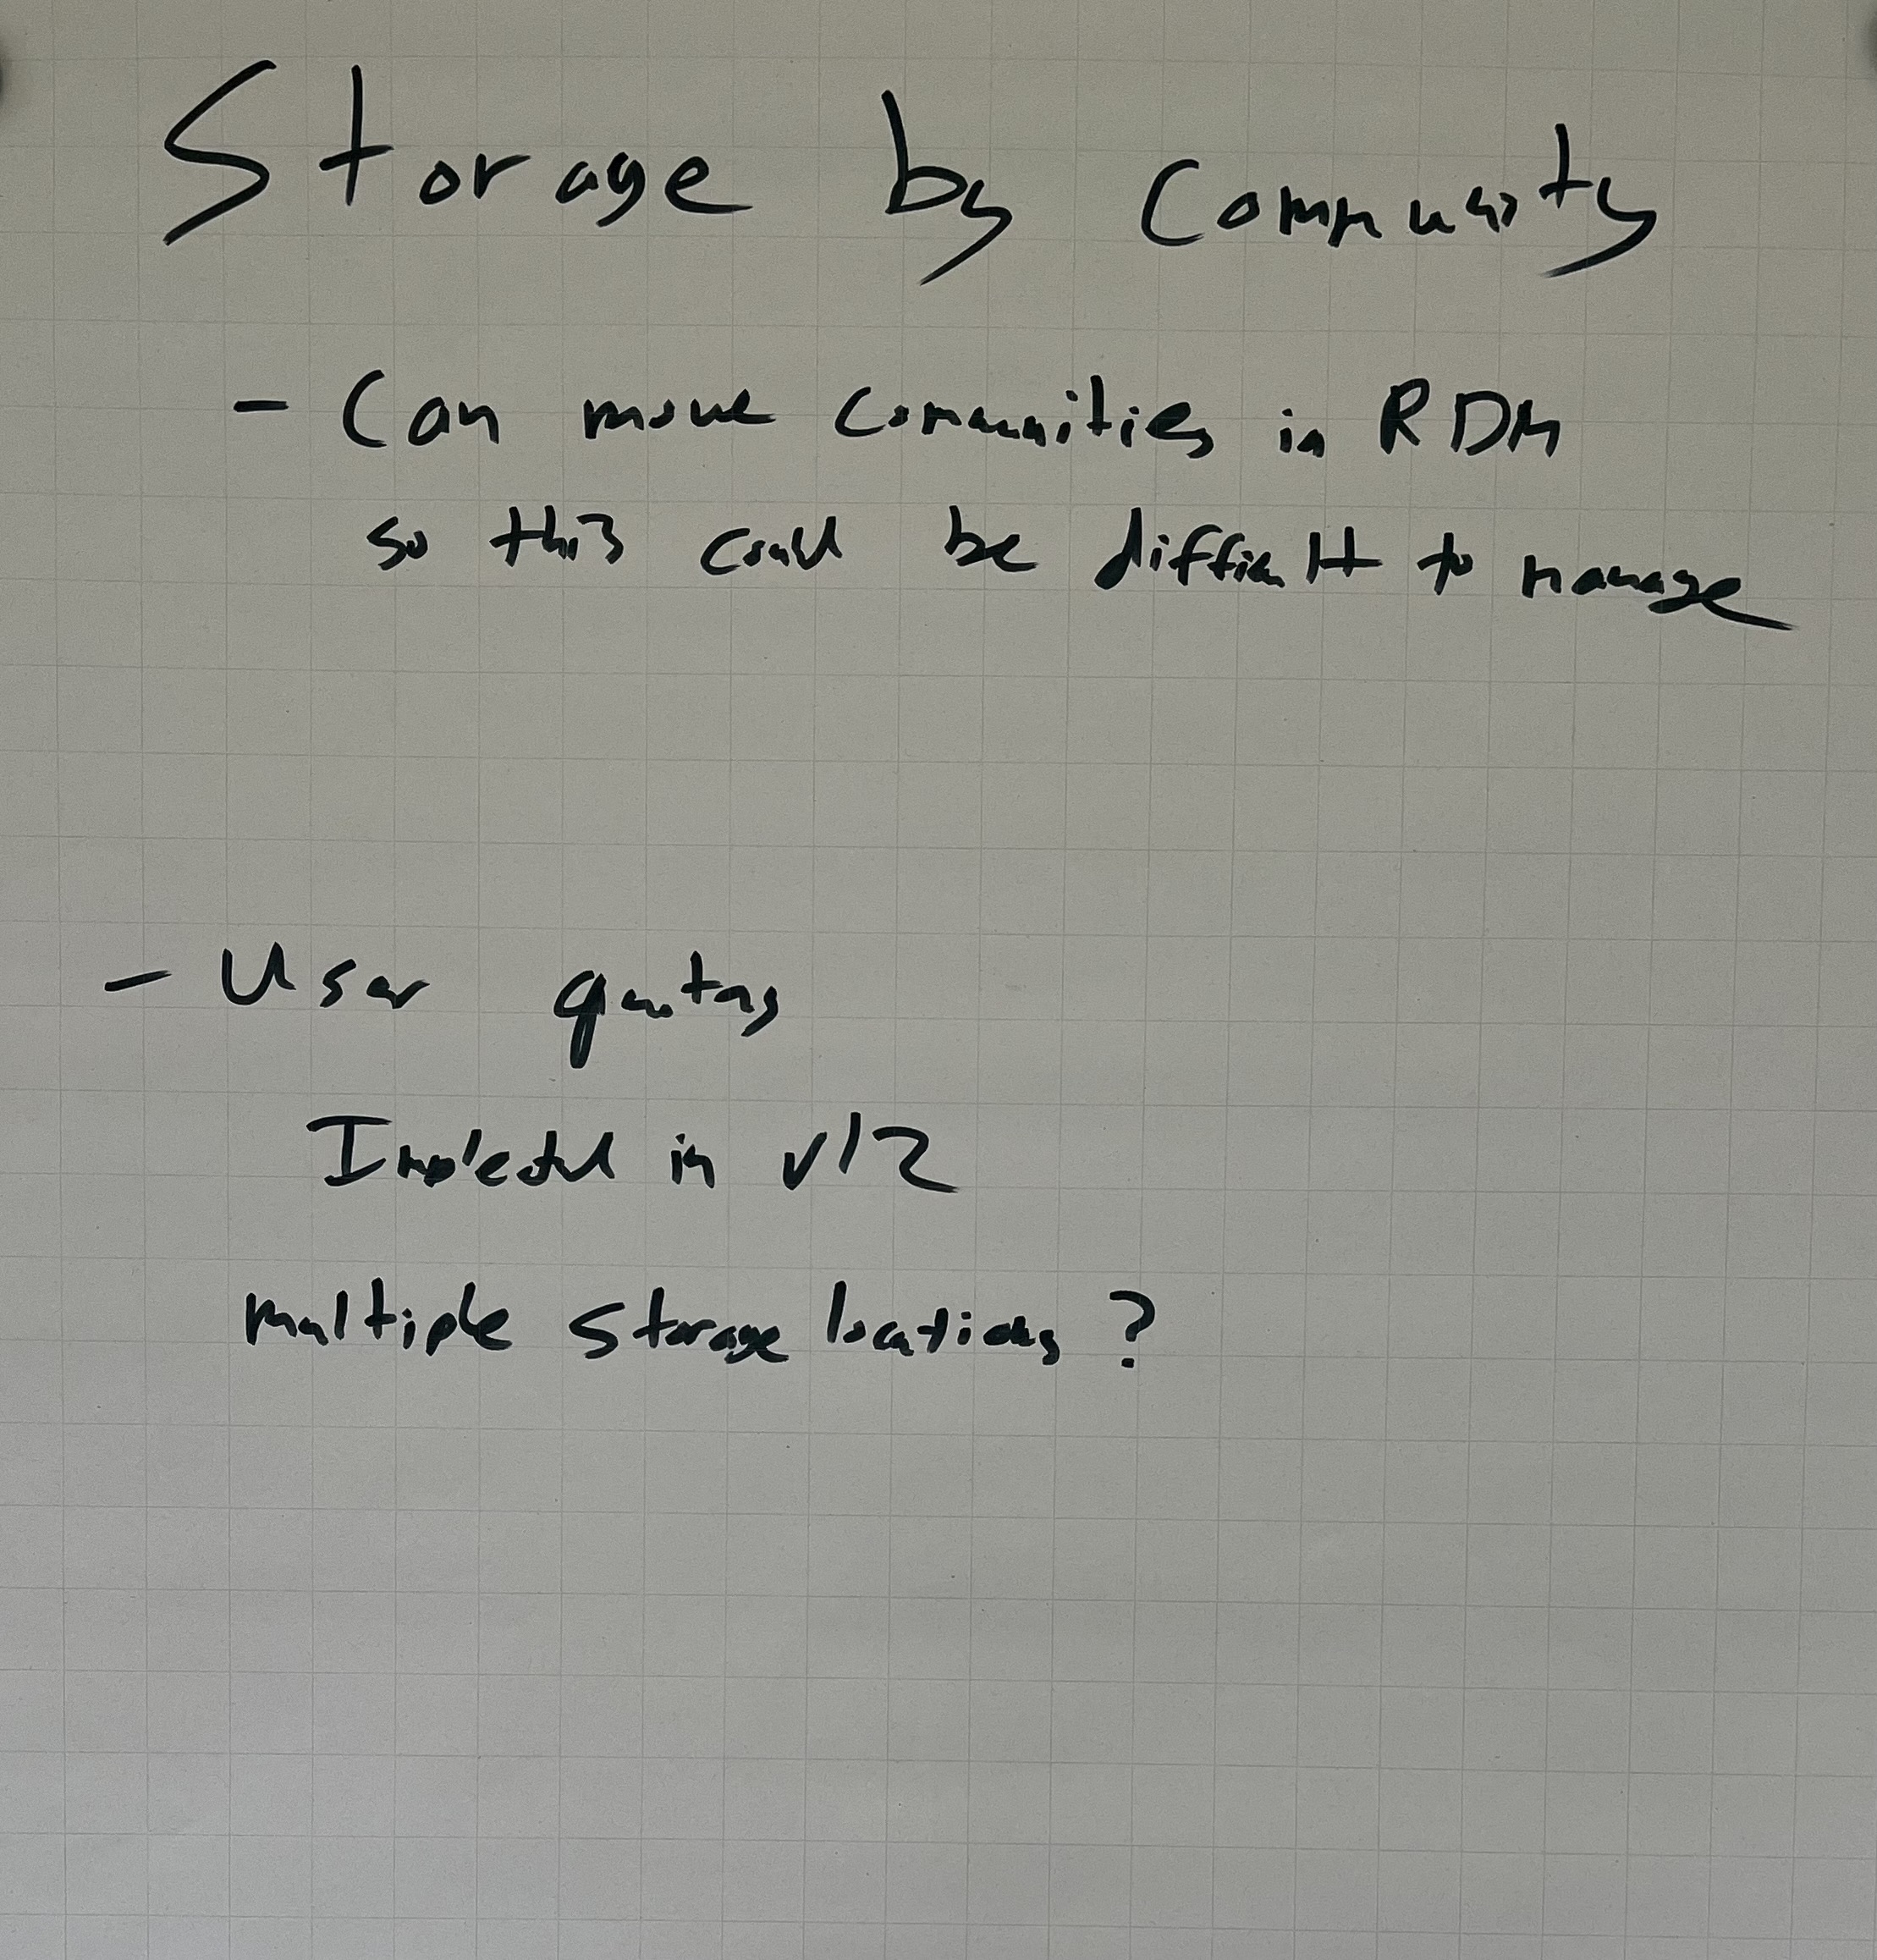 Storage by Community
- Can move Communities in RDM
so this could be difficult to manage
- User quotas
in v12
multiple storage locations ?